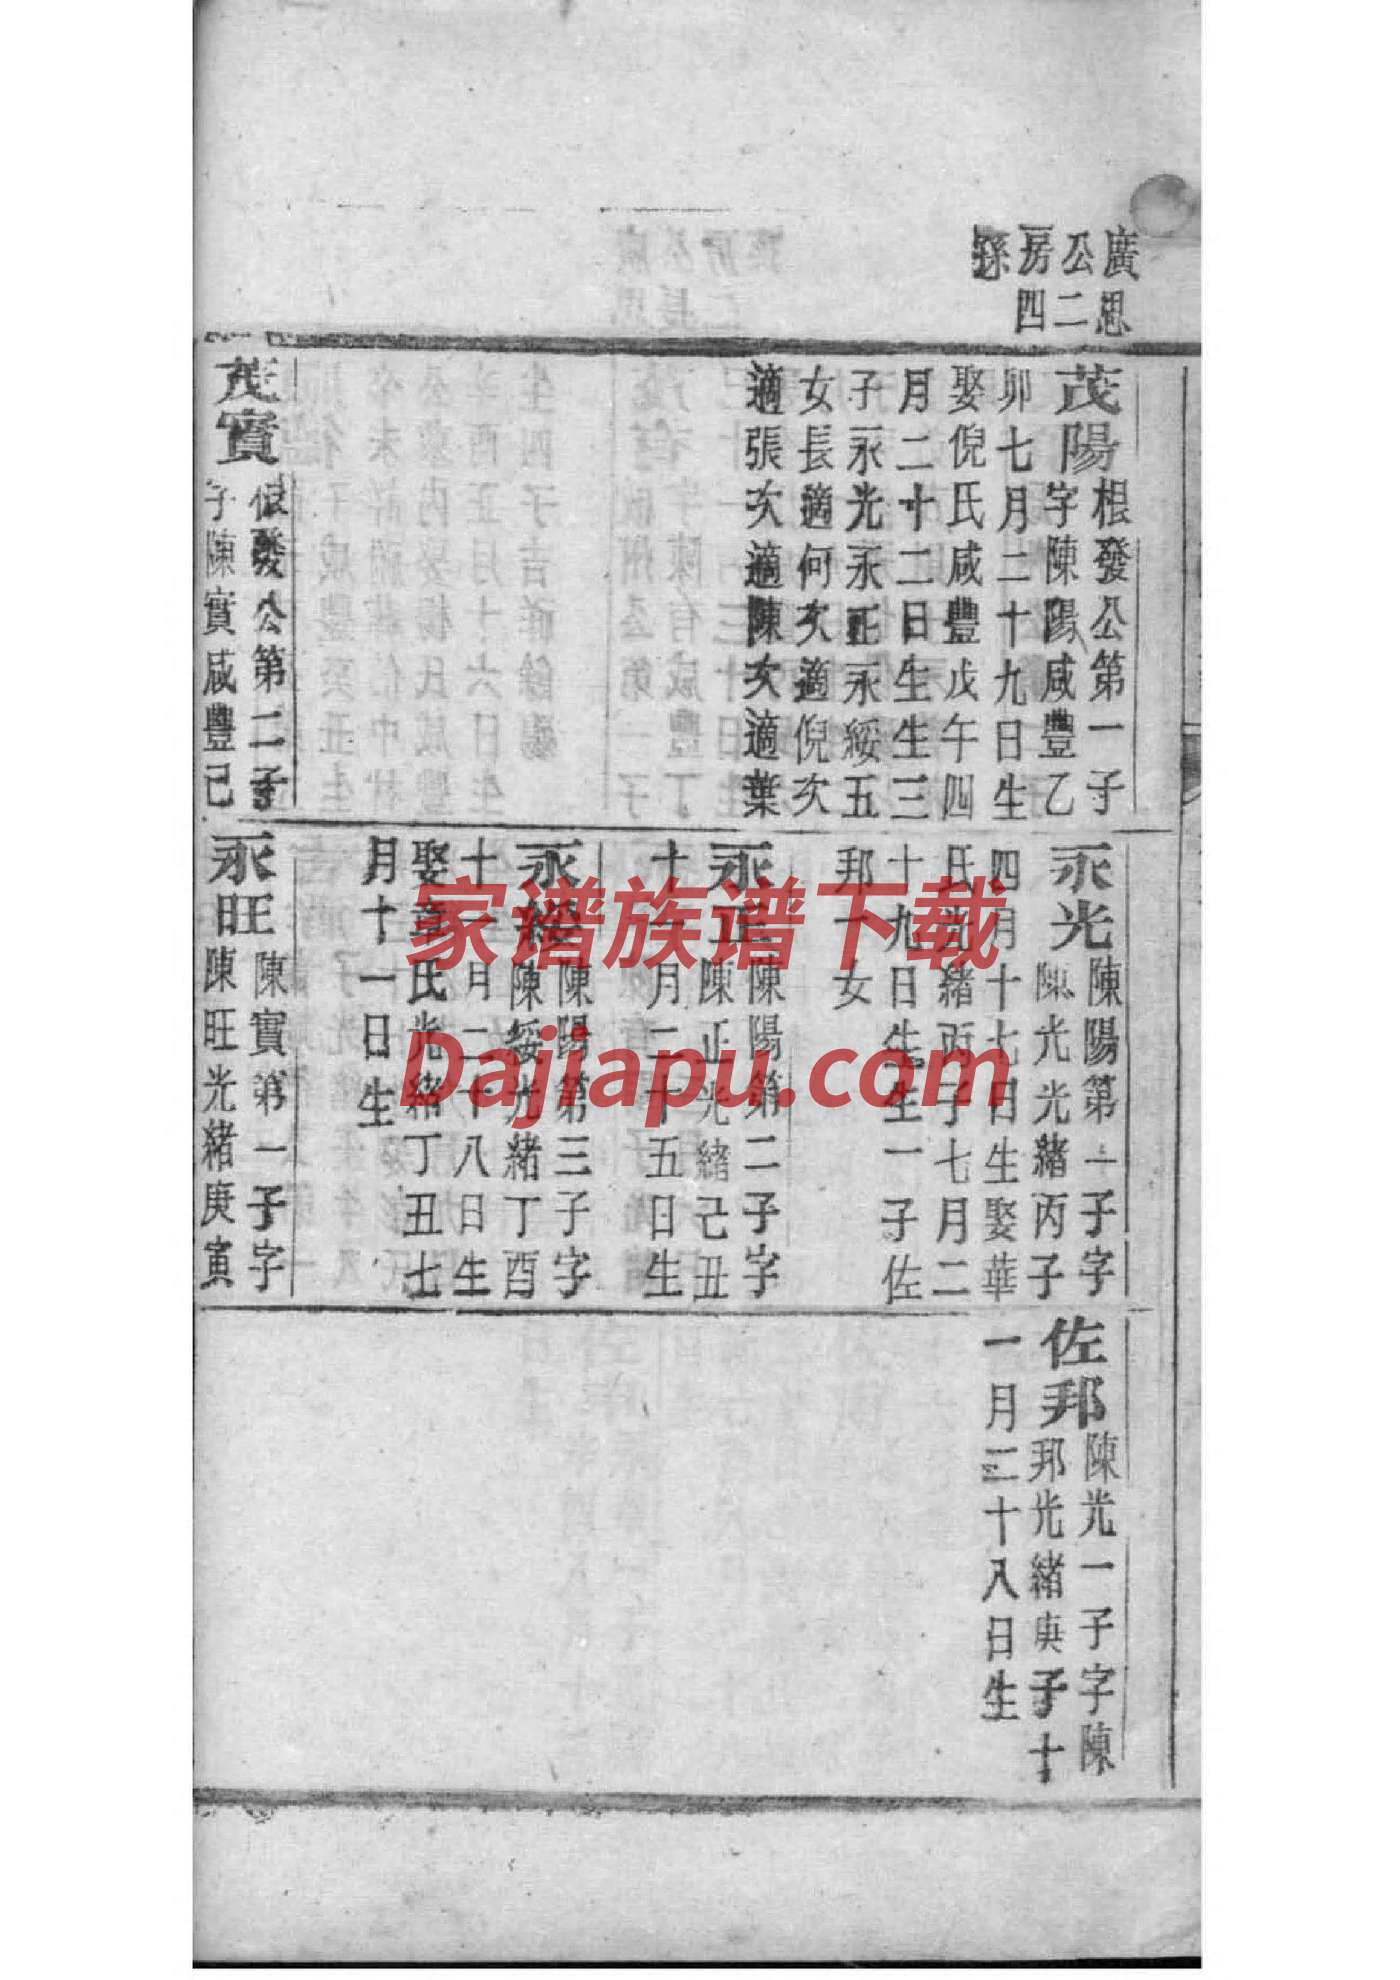 廣思
公二
房四
孫
茂陽
根發公第一子
字陳陽咸豐乙
卯七月二十九日生
娶倪氏咸豐戊午四
月二十二日生生三
子永光永正永綏五
女長適何次適倪次
適張次適陳次適葉
茂實
根發公第二子
子陳實咸豐己
永光
陳陽第一子字
陳光光緒丙子
四月十七日生娶華
氏光緒丙子七月二
十九日生生一子佐
邦一女
永正
陳陽第二子字
陳正光緒己丑
十一月二十五日生
永綏
陳陽第三子字
陳綏光緒丁酉
十一月二十八日生
娶章氏光緒丁丑七
月十一日生
永旺
陳實第一子字
陳旺光緒庚寅
佐邦
陳光一子字陳
邦光緒庚子十
一月二十八日生
家谱族谱下载
Dajiapu.com